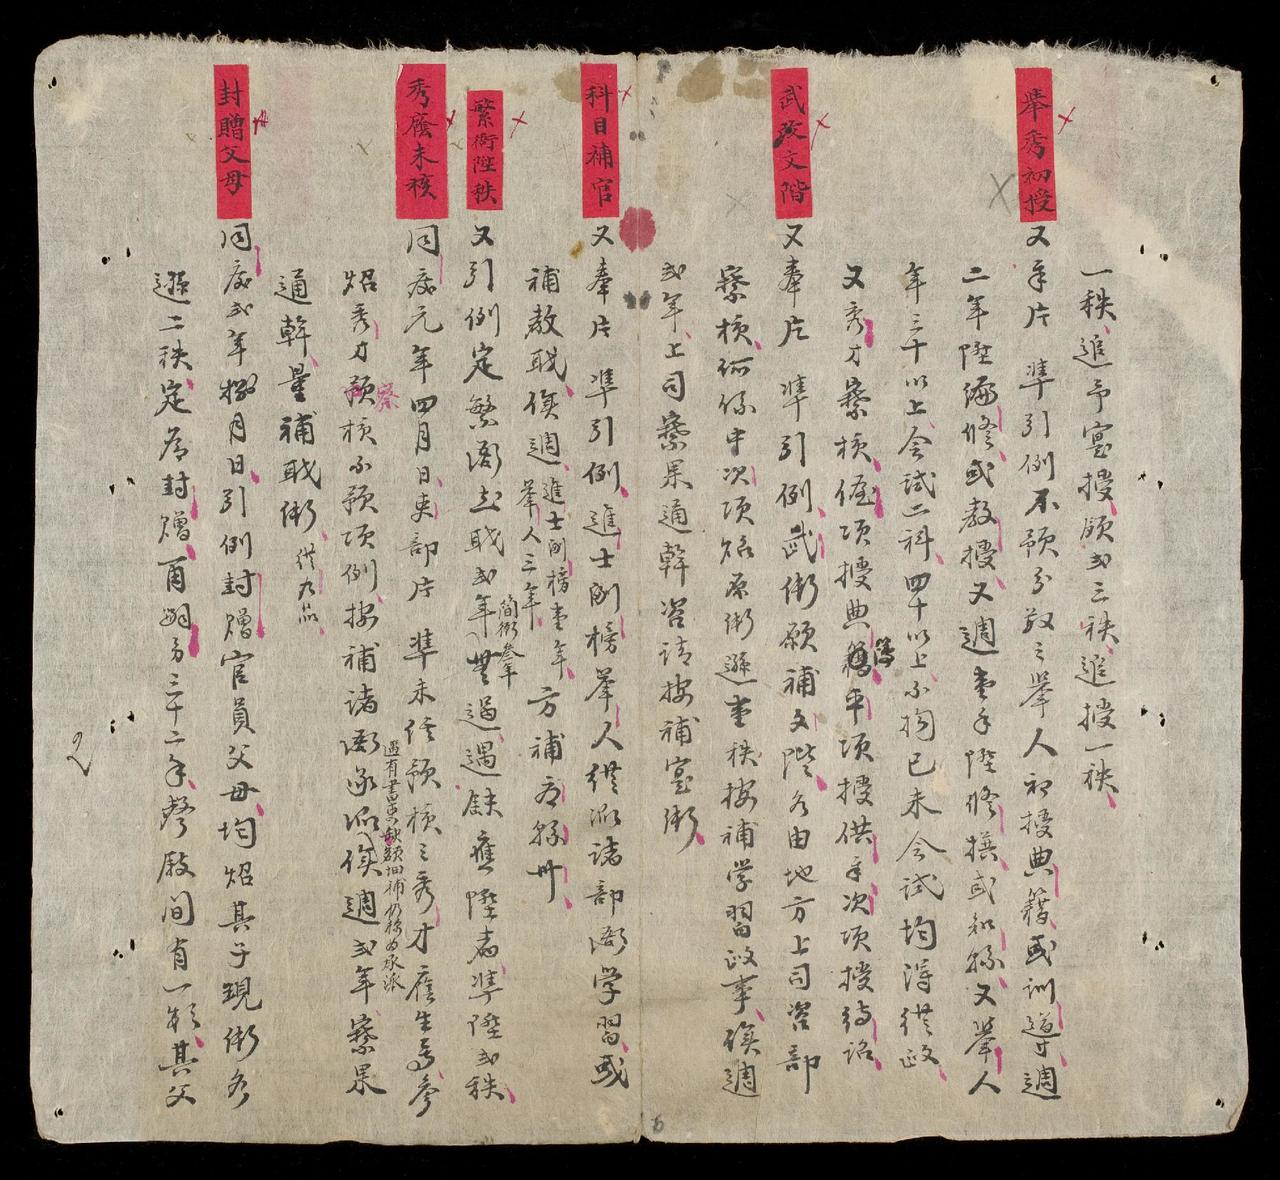 一秩追予寔授願式三秩追授一秩
舉秀初授
又年片準引例不預分教之舉人初授典籍或訓導週
二年陞編修或教授又週壹年陞修撰或知縣又舉人
年三十以上会試二科四十以上不拘已未会試均得供政
又秀才察核優項授典籍平項授供奉次項授待詔
簿
武改文階
又奉片準引例武銜願補文階各由地方上司咨部
察核何係中次項炤原銜遜壹秩按補学習政事俟週
弍年上司察果通幹咨請按補寔銜
科目補官
又奉片準引例進士副榜舉人供派諸部衙学習或
補教职俟週
進士副榜壹年
舉人三年
方補府縣州
繁衙陞秩
又引例定繁衙起职弍年
簡衙叁年
無過遇缺應陞者準陞弍秩
秀廕未核
同慶元年四月日吏部片準未經預核之秀才廕生寺參
炤秀才預核不預項例按補諸衙承派俟週弍年察果
察
遇有書吏缺額間補仍稱為承派
通幹量補职銜
從九品
封贈父母
同慶弍年 月日引例封贈官員父母均炤其子現銜各
遜二秩定為封贈 嗣 三十二年 廢間有一 其父
2
6